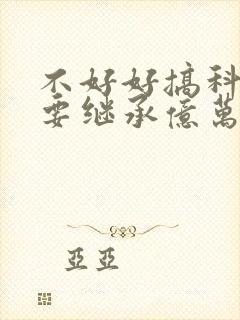 不好好搞科
要继承億萬
亞亞